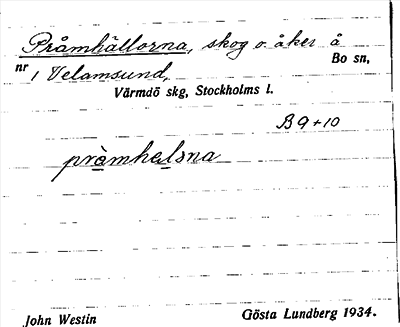 Pråmhällorna, skog o. åker å
nr 1 Velamsund, Bo sn,
Värmdö skg, Stockholms l.
B9+10
pràmhelsna
John Westin Gösta Lundberg 1934.